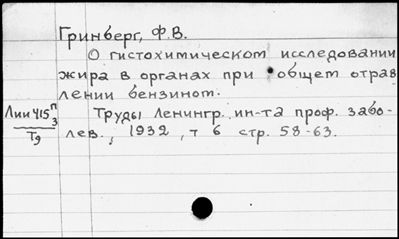 Гринберг, Ф.В.
О гистохимическом исследовании
жира в органах при общем отрав
лении бензином.
Лии 415 п/3
Т9
Труды Ленингр. ин-та проф. забо-
лев., 1932, т 6 стр. 58-63.